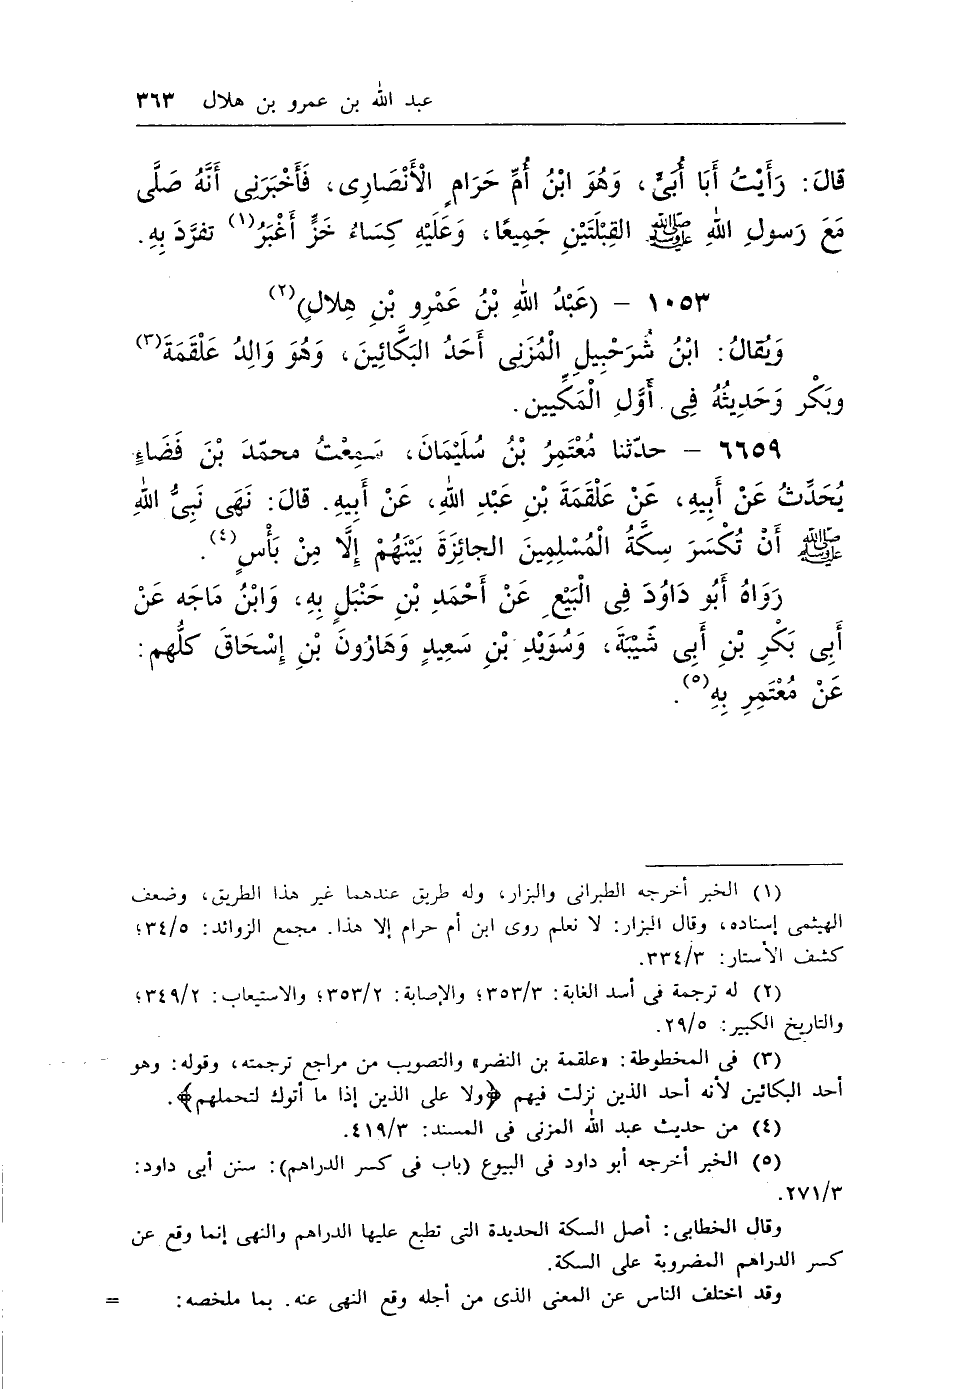 عبد الله بن عمرو بن هلال ٣٦٣
قَالَ: رَأَيْتُ أَبَا أُبَىٍّ، وَهُوَ ابْنُ أُمِّ حَرَامٍ الْأَنْصَارِى، فَأَخْبَرَنِى أَنَّهُ صَلَّى
مَعَ رَسولِ اللهِ ﷺ القِبْلَتَيْنِ جَمِيعًا، وَعَلَيْهِ كِسَاءُ خَزٍّ أَغْبَرُ(١) تفرَّدَ بِهِ.
١٠٥٣ – (عَبْدُ اللهِ بْنُ عَمْرِو بْنِ هِلالٍ)(٢)
وَيُقالُ: ابْنُ شُرَحْبِيلِ الْمُزَنِى أَحَدُ البَكَّائِينَ، وَهُوَ وَالِدُ عَلْقَمَةَ(٣)
وبَكْرٍ وَحَدِيثُهُ فِى أَوَّلِ الْمَكِّيين.
٦٦٥٩ – حدّثنا مُعْتَمِرُ بْنُ سُلَيْمَانَ، سَمِعْتُ محمّدَ بْنَ فَضَاءٍ
يُحَدِّثُ عَنْ أَبِيهِ، عَنْ عَلْقَمَةَ بْنِ عَبْدِ اللهِ، عَنْ أَبِيهِ. قَالَ: نَهَى نَبِىُّ اللهِ
ﷺ أَنْ تُكْسَرَ سِكَّةُ الْمُسْلِمِينَ الجائِزَةَ بَيْنَهُمْ إِلَّا مِنْ بَأْسٍ(٤).
رَوَاهُ أَبُو دَاوُدَ فِى الْبَيْعِ عَنْ أَحْمَدِ بْنِ حَنْبَلٍ بِهِ، وَابْنُ مَاجَه عَنْ
أَبِى بَكْرِ بْنِ أَبِى شَيْبَةَ، وَسُوَيْدِ بْنِ سَعِيدٍ وَهَارُونَ بْنِ إِسْحَاقَ كلُّهم:
عَنْ مُعْتَمِرِ بِهِ(٥).
(١) الخبر أخرجه الطبرانى والبزار، وله طريق عندهما غير هذا الطريق، وضعف
الهيثمى إسناده، وقال البزار: لا نعلم روى ابن أم حرام إلا هذا. مجمع الزوائد: ٣٤/٥؛
كشف الأستار: ٣٣٤/٣.
(٢) له ترجمة فى أسد الغابة: ٣٥٣/٣؛ والإصابة: ٣٥٣/٢؛ والاستيعاب: ٣٤٩/٢؛
والتاريخ الكبير: ٢٩/٥.
(٣) فى المخطوطة: «علقمة بن النضر» والتصويب من مراجع ترجمته، وقوله: وهو
أحد البكائين لأنه أحد الذين نزلت فيهم ﴿ولا على الذين إذا ما أتوك لتحملهم﴾.
(٤) من حديث عبد الله المزنى فى المسند: ٤١٩/٣.
(٥) الخبر أخرجه أبو داود فى البيوع (باب فى كسر الدراهم): سنن أبى داود:
٢٧١/٣.
وقال الخطابى: أصل السكة الحديدة التى تطبع عليها الدراهم والنهى إنما وقع عن
كسر الدراهم المضروبة على السكة.
وقد اختلف الناس عن المعنى الذى من أجله وقع النهى عنه. بما ملخصه: =